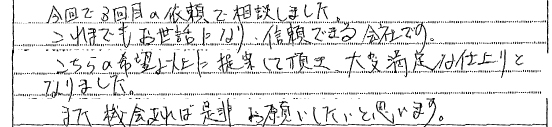 今回で3回目の依頼で相談しました。
これまでもお世話になり、信頼できる会社です。
こちらの希望以上に提案して頂き、大変満足な仕上りと
なりました。
また機会あれば是非お願いしたいと思います。